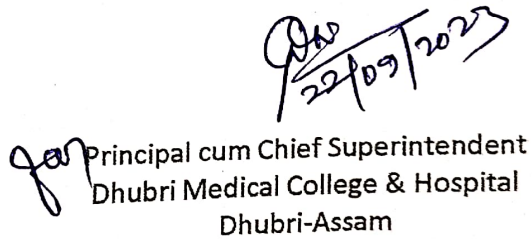 22/09/2023
for Principal cum Chief Superintendent
Dhubri Medical College & Hospital
Dhubri-Assam